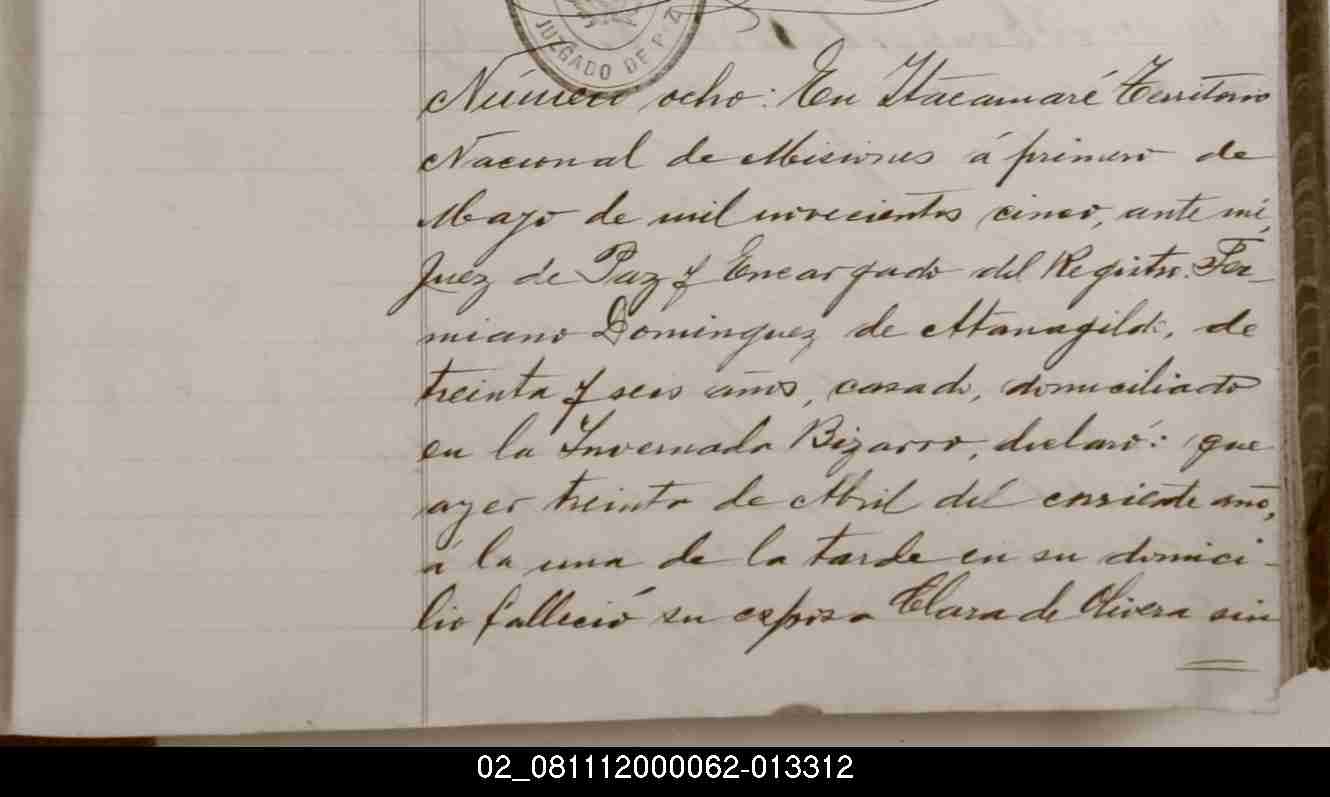 JUZGADO DE PAZ
Número ocho: En Itacamaré Territorio
Nacional de Misiones á primero de
Mayo de mil novecientos cinco, ante mi,
Juez de Paz y Encargado del Registro: Fer-
miano Dominguez de Atanagildo, de
treinta y seis años, casado, domiciliado
en la Invernada Bizarro, declaró: que
ayer treinta de Abril del corriente año,
á la una de la tarde en su domici-
lio falleció su esposa Clara de Olivera sin
02_081112000062-013312